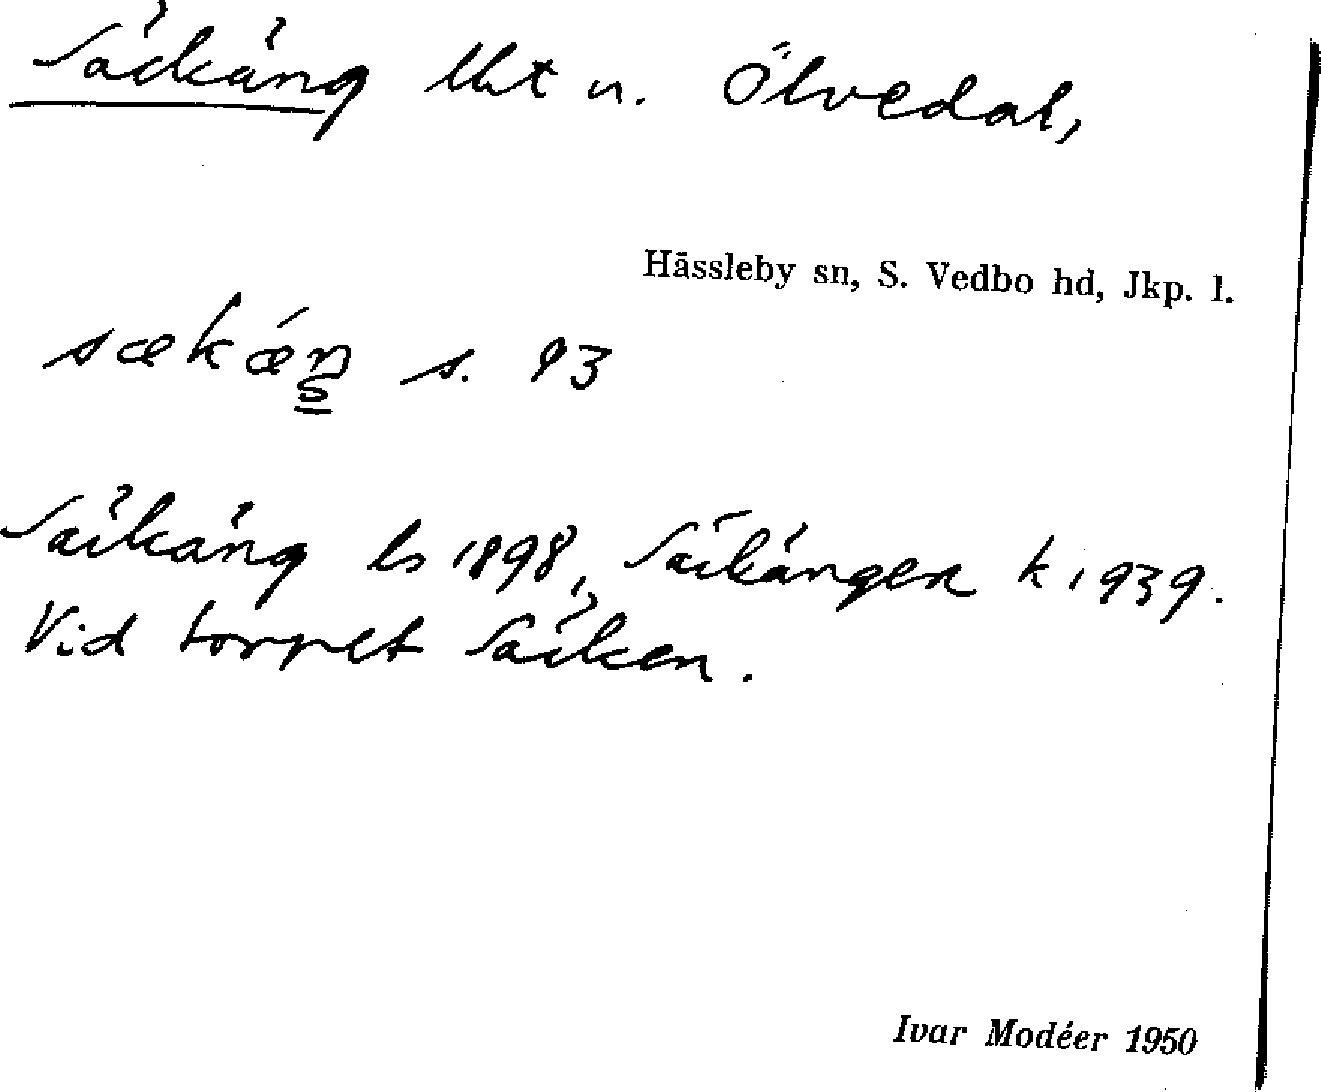 Säckäng lht u. Ölvedal,
Hässleby sn, S. Vedbo hd, Jkp. l.
sækǽŋ s. 93
Säikäng ls 1898, Säikängen k 1939.
Vid torpet Säiken.
Ivar Modéer 1950